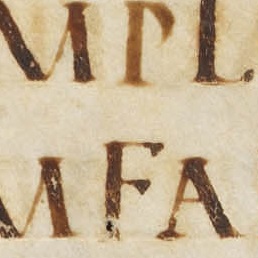 MPL
MFA